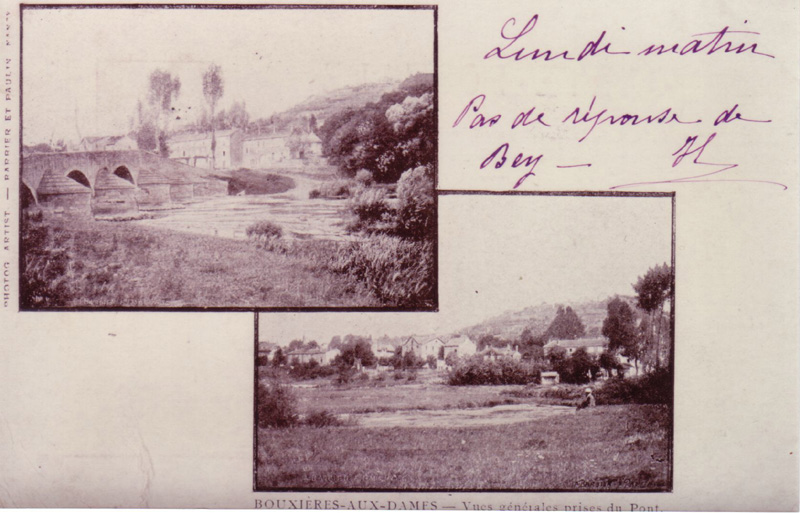 Lundi matin
Pas de réponse de
Bey —
PHOTOG. ARTIST. — BARBIER ET PAULIN, NANCY
BOUXIÈRES-AUX-DAMES — Vues générales prises du Pont.